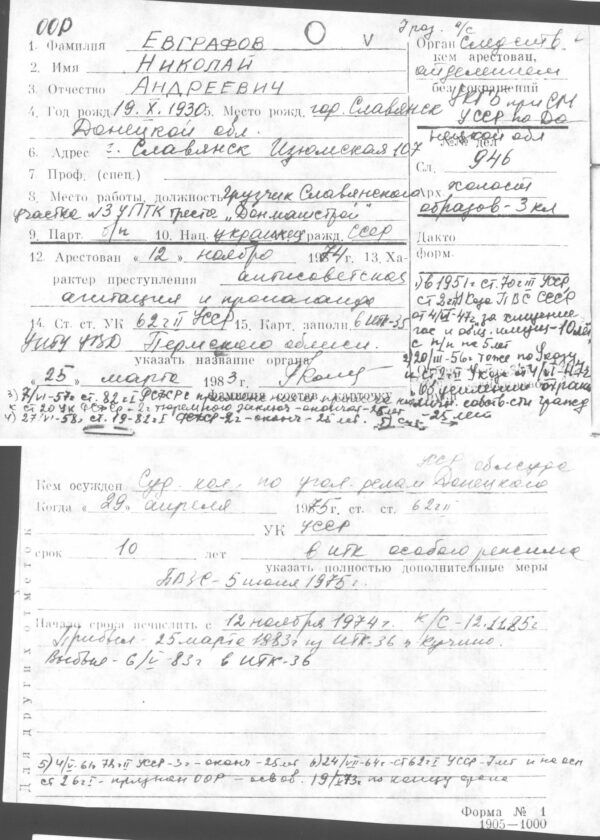 ООР
1. Фамилия ЕВГРАФОВ
2. Имя НИКОЛАЙ
3. Отчество АНДРЕЕВИЧ
4. Год рожд. 19.X.1930 5. Место рожд. гор. Славянск
Донецкой обл.
6. Адрес г. Славянск Изюмская 107
7. Проф. (спец.)
8. Место работы, должность грузчик Славянского
участка №3 УПТК треста „Донмашстрой"
9. Парт. б/п 10. Нац. украинец гражд. СССР
12. Арестован « 12 » ноября 1974 г. 13. Ха-
рактер преступления антисоветская
агитация и пропаганда
14. Ст. ст. УК 62 ч II УССР 15. Карт. заполн. в ИТК-35
УИТУ УВД Пермского облисп.
указать название органа
« 25 » марта 1983 г.
Орган
кем арестован,
без сокращений
УКГБ при СМ
УССР по До
нецкой обл
№№ дел
Сл. 946
Арх. холост
образов - 3 кл
Дакто
форм.
1) в 1951 г. ст. 70 ч III УССР
ст 2 ч I Указа ПВС СССР
от 4/VI-47г. за хищение
гос и общ. имущ - 10 лет
с п/п на 5 лет
2) 20/III-56г. тоже по Указу
- 25 лет
3) 7/VI-57г. ст. 82 ч I РСФСР с
ст 20 УК РСФСР - 2 г. тюремного заключ - окончат - 25 лет
4) 27/VI-58г. ст. 19-82 ч I РСФСР - 2 г - окончат - 25 лет.
Кем осужден Суд. кол. по угол. делам Донецкого
облсуда
Когда « 29 » апреля 1975 г. ст. ст. 62 ч II
УК УССР
срок 10 лет в ИТК особого режима
указать полностью дополнительные меры
ПВЗС - 5 июня 1975 г.
Начало срока исчислить с 12 ноября 1974 г. К/С - 12.11.85 г
Прибыл - 25 марта 1983 г из ИТК-36 п Кучино.
Выбыл - 6/V-83 г в ИТК-36
Для других отметок
5) 4/V-61г. 78 ч II УССР - 3 г - оконч - 25 лет 6) 24/VII-64г - ст 62 ч I УССР - 7 лет и на осн
ст 26 ч I - признан ООР - освоб. 19/V 73 г по концу срока
Форма № 1
1905—1000